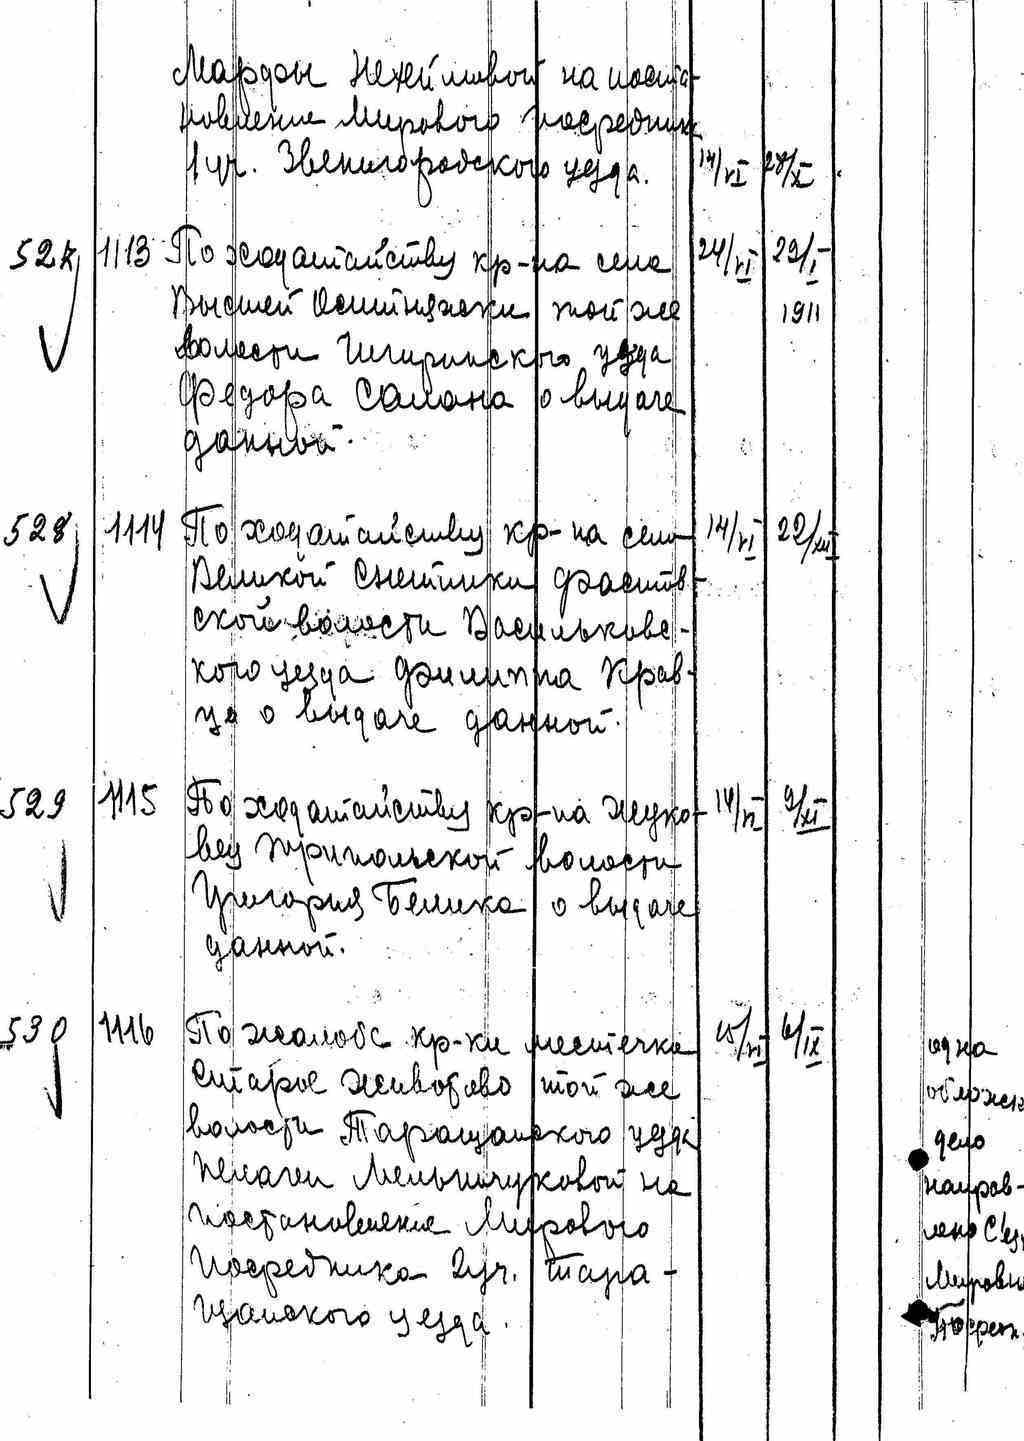 Марфы Нехейливой на поста-
новление Мирового посредника
1 уч. Звенигородского уезда. 14/VI 28/XI
527 1113 По ходатайству кр-на села 24/VI 29/I
Высшей Оситняжки той же 1911
волости Чигиринского уезда
Федора Салана о выдаче
данной.
528 1114 По ходатайству кр-на села 14/VI 22/XII
Великой Снетинки Фастов-
ской волости Васильковс-
кого уезда Филиппа Крав-
ца о выдаче данной.
529 1115 По ходатайству кр-на Жуко- 14/VI 9/XI
вец Трипольской волости
Григория Белика о выдаче
данной.
530 1116 По жалобе кр-ки местечка 15/VI 6/IX
Старое Животово той же
волости Таращанского уезда
Пелагеи Мельничуковой на
постановление Мирового
Посредника 2 уч. Тара-
щанского уезда.
одна
обложк
дело
направ-
лено Съез
Мировых
Посредн